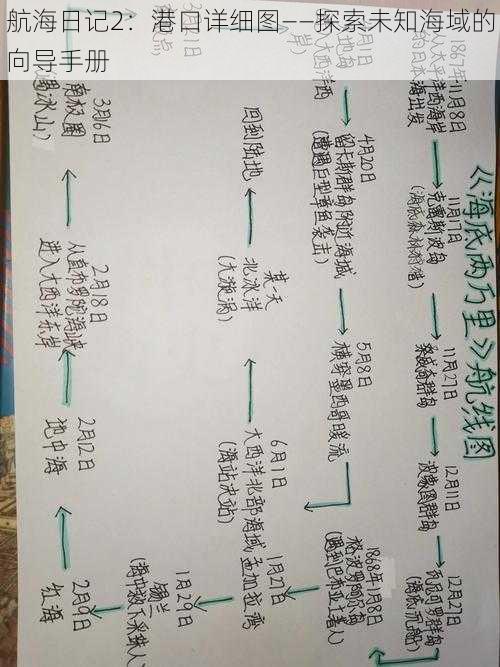 航海日记2：港口详细图——探索未知海域的
向导手册
《海底两万里》航线图
1867年11月8日
从太平洋西海岸
的日本海出发
11月17日
克雷斯波岛
(海底森林狩猎)
11月27日
桑威奇群岛
12月11日
波莫图群岛
12月27日
瓦尼可罗群岛
(海底沉船)
1868年1月8日
格波罗尔岛
(遇到巴布亚土著人)
1月21日
孟加拉湾
1月29日
锡兰
(海中救下采珠人)
2月9日
红海
2月12日
地中海
2月18日
从直布罗陀海峡
进入大西洋东岸
3月16日
南极圈
遇冰山)
大西洋西
4月20日
留卡斯群岛附近海域
(遭遇巨型章鱼袭击)
5月8日
横穿墨西哥暖流
6月1日
大西洋北部海域
(海站决站)
某一天
北冰洋
(大漩涡)
回到陆地